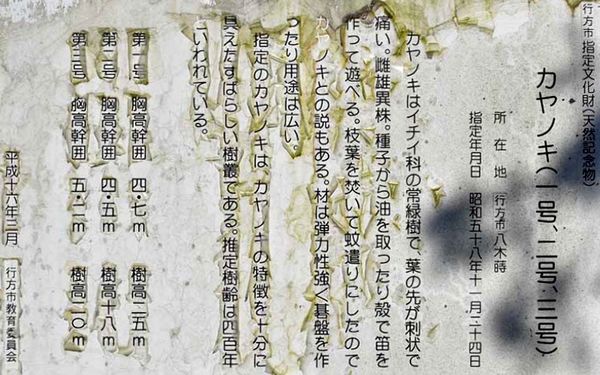 行方市指定文化財(天然記念物)
カヤノキ(一号、二号、三号)
所在地 行方市八木蒔
指定年月日 昭和五十八年十一月二十四日
カヤノキはイチイ科の常緑樹で、葉の先が刺状で
痛い。雌雄異株。種子から油を取ったり殻で笛を
作って遊べる。枝葉を焚いて蚊遣りにしたので
カヤノキとの説もある。材は弾力性強く碁盤を作
ったり用途は広い。
指定のカヤノキは、カヤノキの特徴を十分に
具えたすばらしい樹叢である。推定樹齢は四百年
といわれている。
第一号 胸高幹囲 四・七m 樹高二五m
第二号 胸高幹囲 四・五m 樹高十八m
第三号 胸高幹囲 五・二m 樹高二〇m
平成十六年三月 行方市教育委員会